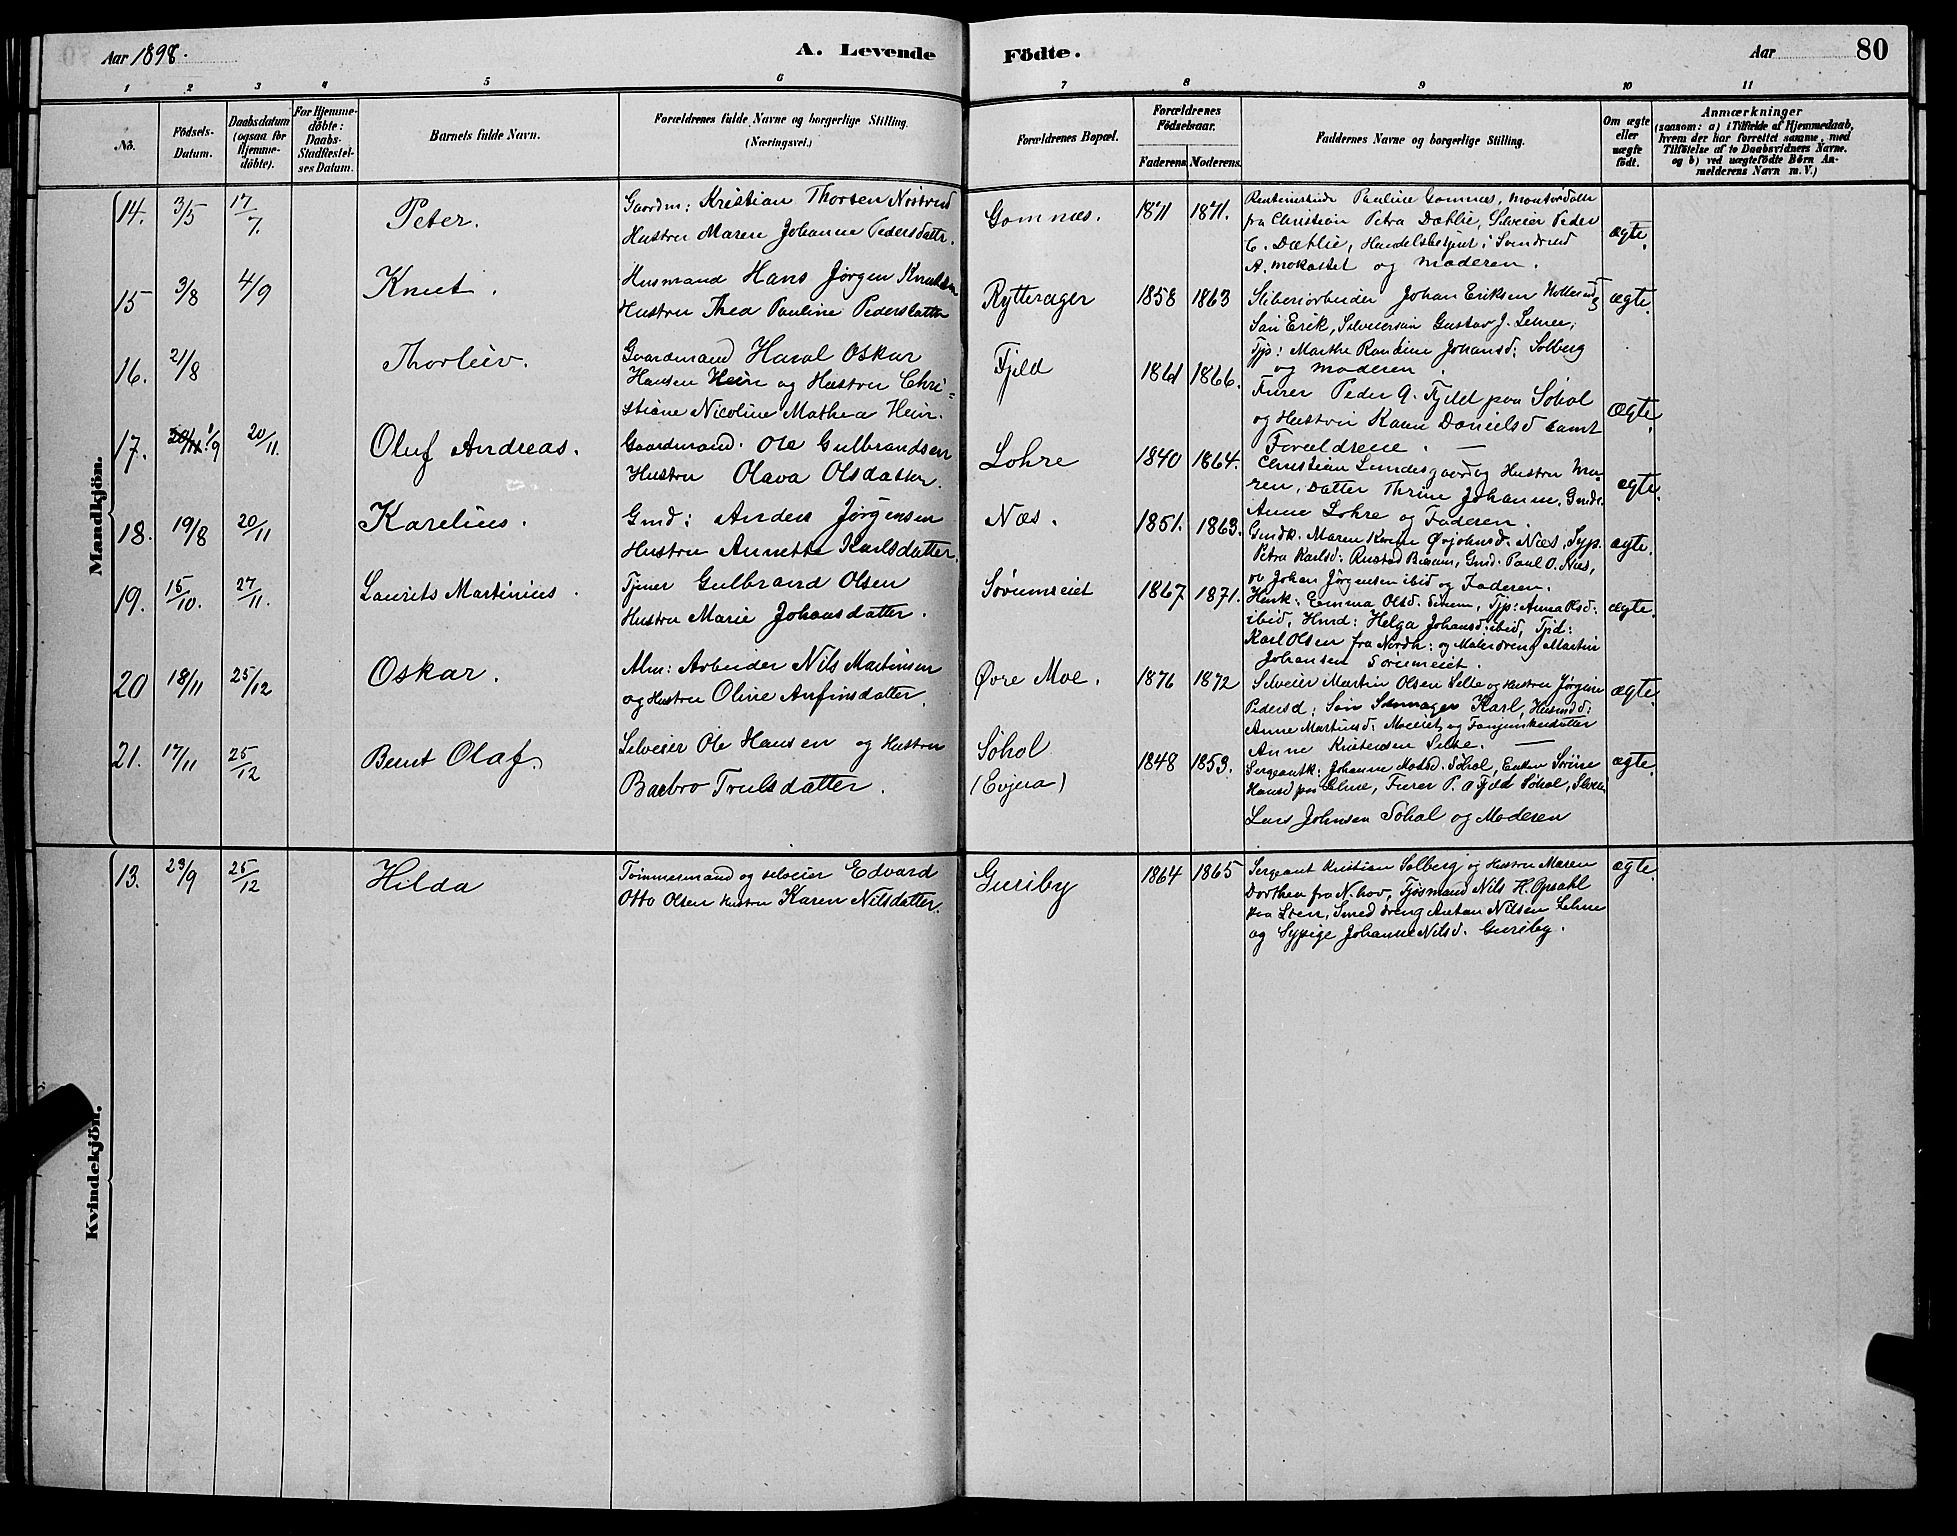 Aar 1898.
A. Levende
Födte.
Aar
80
1 2 3 4 5 6 7 8 9 10 11
No.
Födsels-Datum.
Daabsdatum (ogsaa for Hjemme-döbte).
For Hjemme-döbte: Daabs-Stadfæstelses Datum.
Barnets fulde Navn.
Forældrenes fulde Navne og borgerlige Stilling. (Næringsvei.)
Forældrenes Bopæl.
Forældrenes Födselsaar.
Faderens Moderens
Faddernes Navne og borgerlige Stilling.
Om ægte eller uægte født.
Anmærkninger
(saasom: a) i Tilfælde af Hjemmedaab,
hvem der har forrettet samme, med
Tilföielse af to Daabsvidners Navne.
og b) ved uægtefödte Börn An-
melderens Navn m.V.)
Mandkjön.
14. 3/5 17/7. Peter.
Gaardm: Kristian Thorsen
Hustru Maren Johanne Pedersdatter.
Gomnæs. 1871 1871.
Pauline Gomnæs,
fra Christian Petra Dæhlie, Selveier Peder
C. Dæhlie, Handelsbetjent i
A. og Moderen.
ægte.
15 3/8 4/9 Knut.
Husmand Hans Jørgen Knudsen
Hustru Thea Pauline Pedersdatter
Rytterager 1858 1863
Sliberiarbeider Johan Eriksen
Søn Erik, Selveiersøn Gustav J. Lehne,
Tjp: Marthe Randine Johansd: Solberg
og Moderen.
ægte.
16. 21/8 Thorleiv.
Gaardmand Haral Oskar
Hansen Hein og Hustru Chri=
stiane Nicoline Mathea Hein.
Fjeld 1861 1866.
Furer Peder A. Fjeld paa Søhol
og Hustru Karen Danielsd samt
Forældrene.
ægte.
17. 1/9 20/11. Oluf Andreas.
Gaardmand. Ole Gulbrandsen
Hustru Olava Olsdatter.
Lohre 1840 1864.
Christian Lundesgaard og Hustru Ma-
ren, Datter Thrine Johanne, Gmdk.
Anne Lohre og Faderen.
ægte.
18. 19/8 20/11 Karelius.
Gmd: Anders Jørgensen
Hustru Annette Karlsdatter.
Næs. 1851. 1863.
Gmdk. Maren Næs, Syp.
Petra Karlsd: Rustad Gmd: Paul O. Næs,
og Johan Jørgensen ibid og Faderen.
ægte.
19. 15/10. 27/11. Laurits Martinius.
Tjener Gulbrand Olsen
Hustru Marie Johansdatter.
Sørumseiet 1867 1871.
Husk: Emma Olsd. Tjp: Anna Olsd:
ibid, Hmd: Helga Johansd: ibid, Tjd:
Karl Olsen fra Nordh: og Malerdreng Martin
Johansen Sørumeiet.
ægte.
20 18/11 25/12 Oskar.
Alm: Arbeider Nils Martinsen
og Hustru Oline Anfinsdatter.
Øvre Moe. 1876 1872
Selveier Martin Olsen Selte og Hustru Jørgine
Pedersd; Søn Karl, Husmd:
Anne Martinsd: Moeeiet og
Anne Kristensen Selte.
ægte.
21. 17/11 25/12 Bernt Olaf.
Selveier Ole Hansen og Hustru
Barbro Trulsdatter.
Søhol
(Evjua) 1848 1853.
Sergeantk: Johanne Søhol, Enken Sørine
Hansd paa Lehne, Furer P. A Fjeld Søhol,
Lars Johnsen Søhol og Moderen
ægte.
Kvindekjön.
13. 23/9 25/12 Hilda
Tømmermand og selveier Edvard
Otto Olsen Hustru Karen Nilsdatter.
Guriby 1864 1865
Sergeant Kristian Solberg og Hustru Maren
Dorthea fra N. hov, Nils H. Opsahl
paa Steen, Smed dreng Anton Nilsen Lehne
og Sypige Johanne Nilsd. Guriby.
ægte.